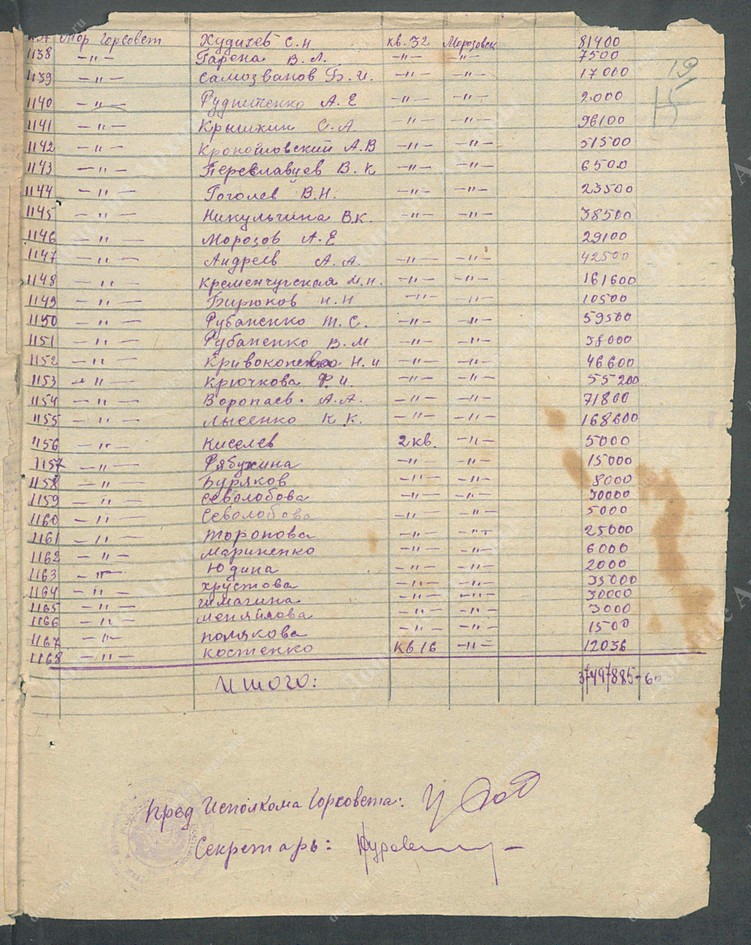 1137 Мор Горсовет Худичев С.Н кв.32 Морозовск 81400
1138 —"— Гарена В.Л. —"— —"— 7500
1139 —"— Самозванов Б.И. —"— —"— 17000
19
1140 —"— Рудниченко А.Е —"— —"— 2.000
15
1141 —"— Крышкин С.А. —"— —"— 96100
1142 —"— А.В —"— —"— 51500
1143 —"— Переславцев В.К —"— —"— 6500
1144 —"— Гоголев В.Н. —"— —"— 23500
1145 —"— Никульчина В.К. —"— —"— 38500
1146 —"— Морозов А.Е 29100
1147 —"— Андреев А.А. —"— —"— 42500
1148 —"— Кременчугская М.Н. —"— —"— 161600
1149 —"— Бирюков Н.Н —"— —"— 10500
1150 —"— Рубаненко Т.С. —"— —"— 59500
1151 —"— Рубаненко В.М —"— —"— 38000
1152 —"— Н.И —"— —"— 46600
1153 —"— Крючкова Ф.И. —"— —"— 55200
1154 —"— Воропаев А.А. —"— —"— 71800
1155 —"— Лысенко К.К. —"— —"— 168600
1156 —"— Киселев 2кв. —"— 5000
1157 —"— Рябухина —"— —"— 15000
1158 —"— Буряков —"— —"— 8000
1159 —"— Севолобова —"— —"— 30000
1160 —"— Севолобова —"— —"— 5000
1161 —"— Торопова —"— —"— 25000
1162 —"— Мариненко —"— —"— 6000
1163 —"— Юдина —"— —"— 2000
1164 —"— Хрустова —"— —"— 35000
1165 —"— Шмагина —"— —"— 30000
1166 —"— Меняйлова —"— —"— 3000
1167 —"— Полякова —"— —"— 1500
1168 —"— Костенко кв 16 —"— 12036
Итого: 37497885-60
Пред Исполкома Горсовета:
Секретарь: